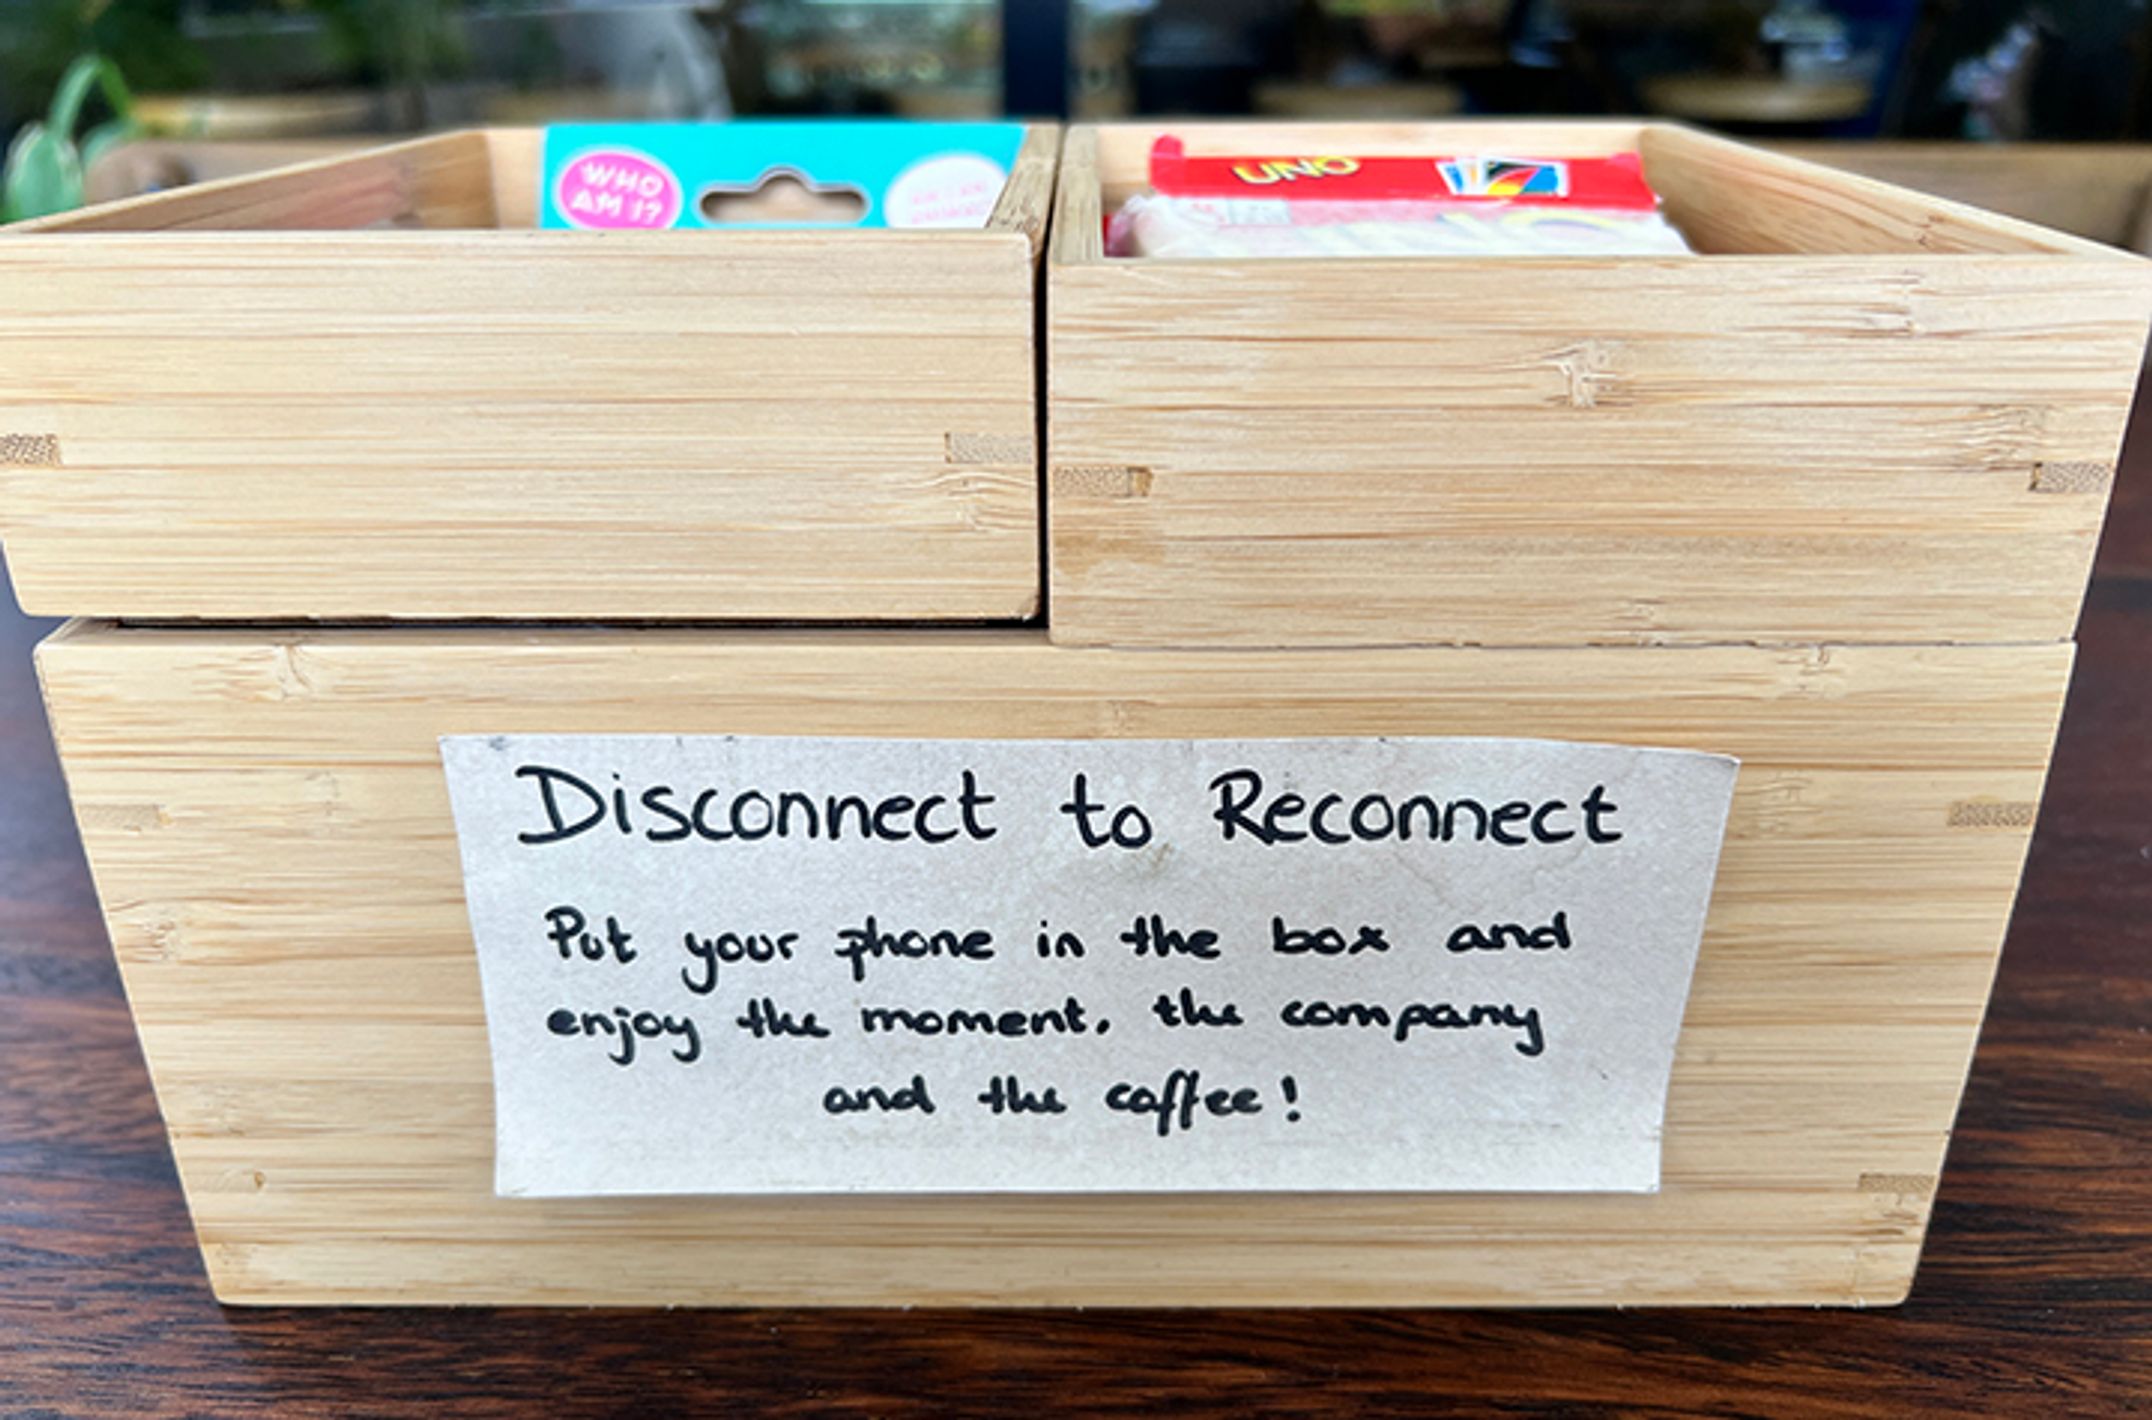 WHO
AM I?
UNO
Disconnect to Reconnect
Put your phone in the box and
enjoy the moment, the company
and the coffee!